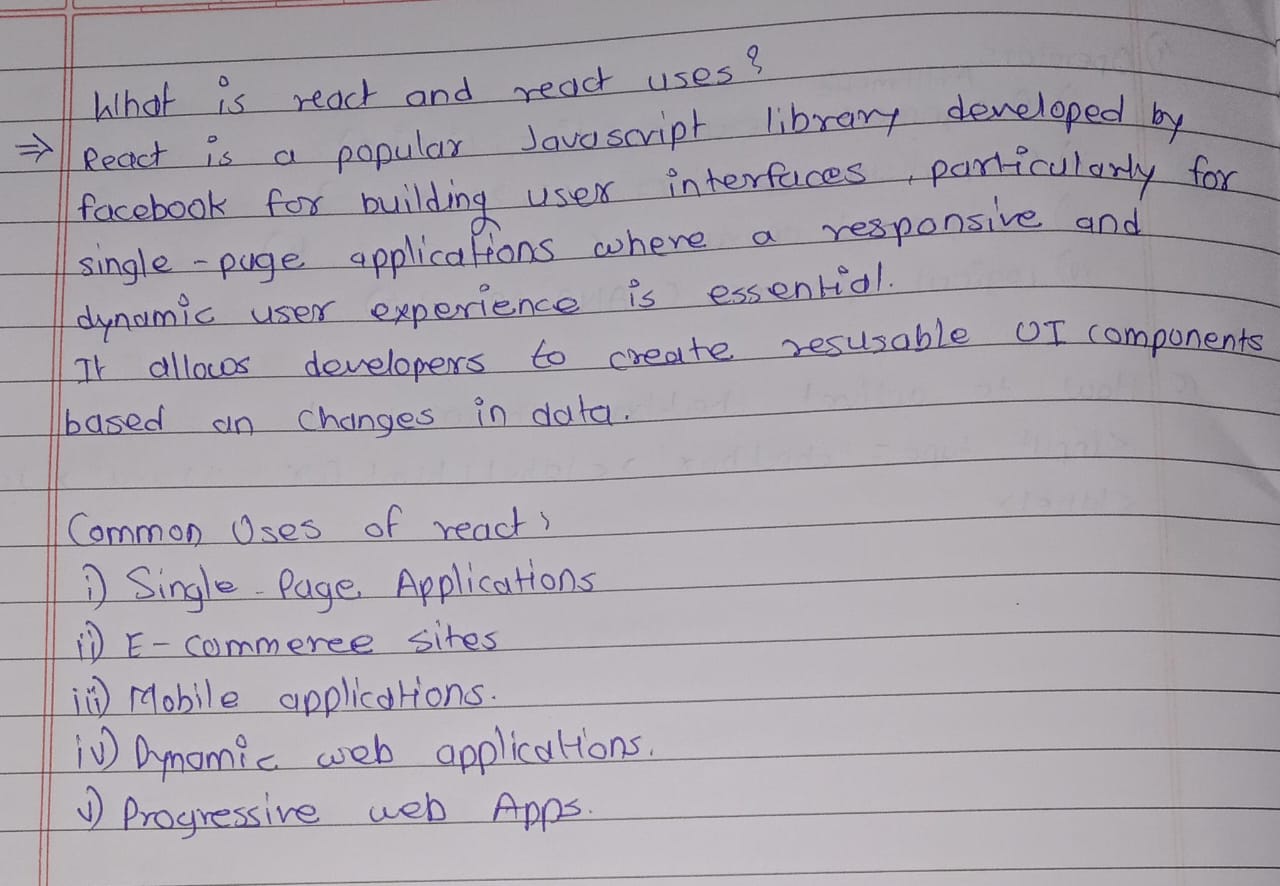 What is react and react uses?
⇒ React is a popular Javascript library developed by
facebook for building user interfaces, particularly for
single-page applications where a responsive and
dynamic user experience is essential.
It allows developers to create resusable UI components
based an changes in data.
Common Uses of react:
i) Single-Page Applications
ii) E-commerce sites
iii) Mobile applications.
iv) Dynamic web applications.
v) Progressive web Apps.